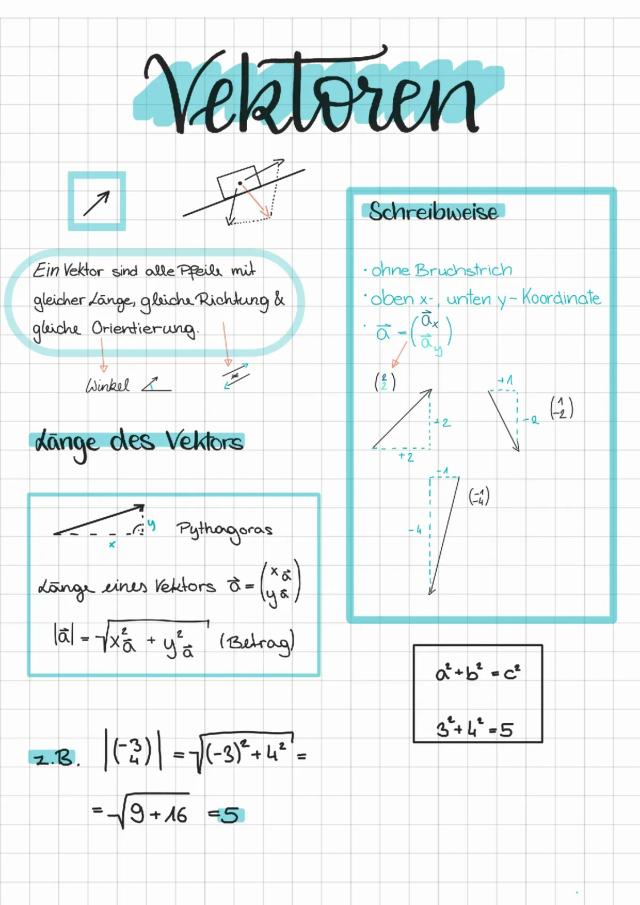 Vektoren
Ein Vektor sind alle Pfeile mit
gleicher Länge, gleiche Richtung &
gleiche Orientierung.
Winkel
Länge des Vektors
y
x
Pythagoras
Länge eines Vektors a⃗ = (x a⃗ / y a⃗)
|a⃗| = √(x²a⃗ + y²a⃗) (Betrag)
z.B. |(-3 / 4)| = √((-3)² + 4²) =
= √(9 + 16) = 5
Schreibweise
· ohne Bruchstrich
· oben x-, unten y-Koordinate
· a⃗ = (a⃗x / a⃗y)
(2 / 2)
+2
+2
+1
-2
(1 / -2)
-1
-4
(-1 / -4)
a² + b² = c²
3² + 4² = 5